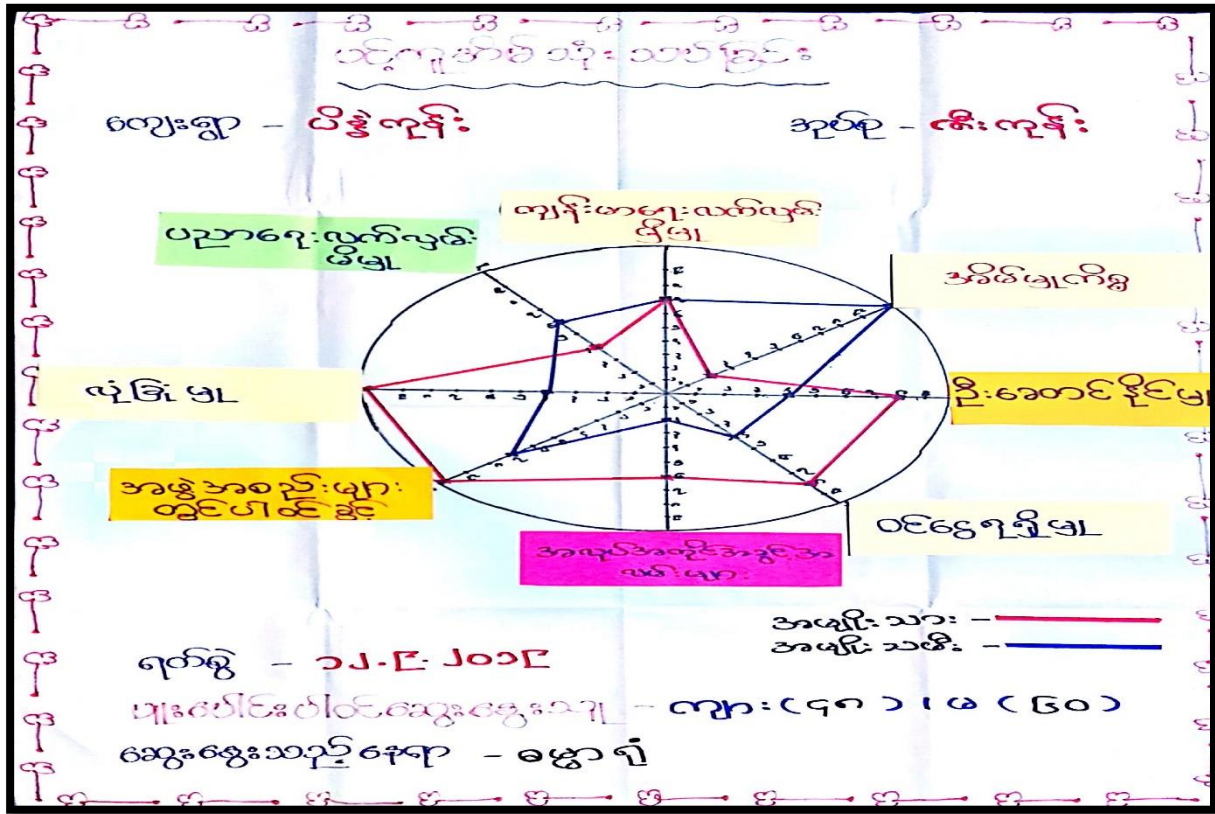 ပင့်ကူအိမ်သုံးသပ်ခြင်း
ကျေးရွာ - ပိန္နဲကုန်း
အုပ်စု - ဇီးကုန်း
ကျန်းမာရေးလက်လှမ်း
မှီမှု
ပညာရေးလက်လှမ်း
မီမှု
အိမ်မှုကိစ္စ
လုံခြုံမှု
ဦးဆောင်နိုင်မှု
အဖွဲ့အစည်းများ
တွင်ပါဝင်ခွင့်
ဝင်ငွေရရှိမှု
အလုပ်အကိုင်အခွင့်အ
လမ်းများ
အမျိုးသား -
အမျိုးသမီး -
ရက်စွဲ - ၁၂.၉.၂၀၁၉
ပူးပေါင်းပါဝင်ဆွေးနွေးသူ - ကျား(၄၈)၊ မ(၆၀)
ဆွေးနွေးသည့်နေရာ - ဓမ္မာရုံ